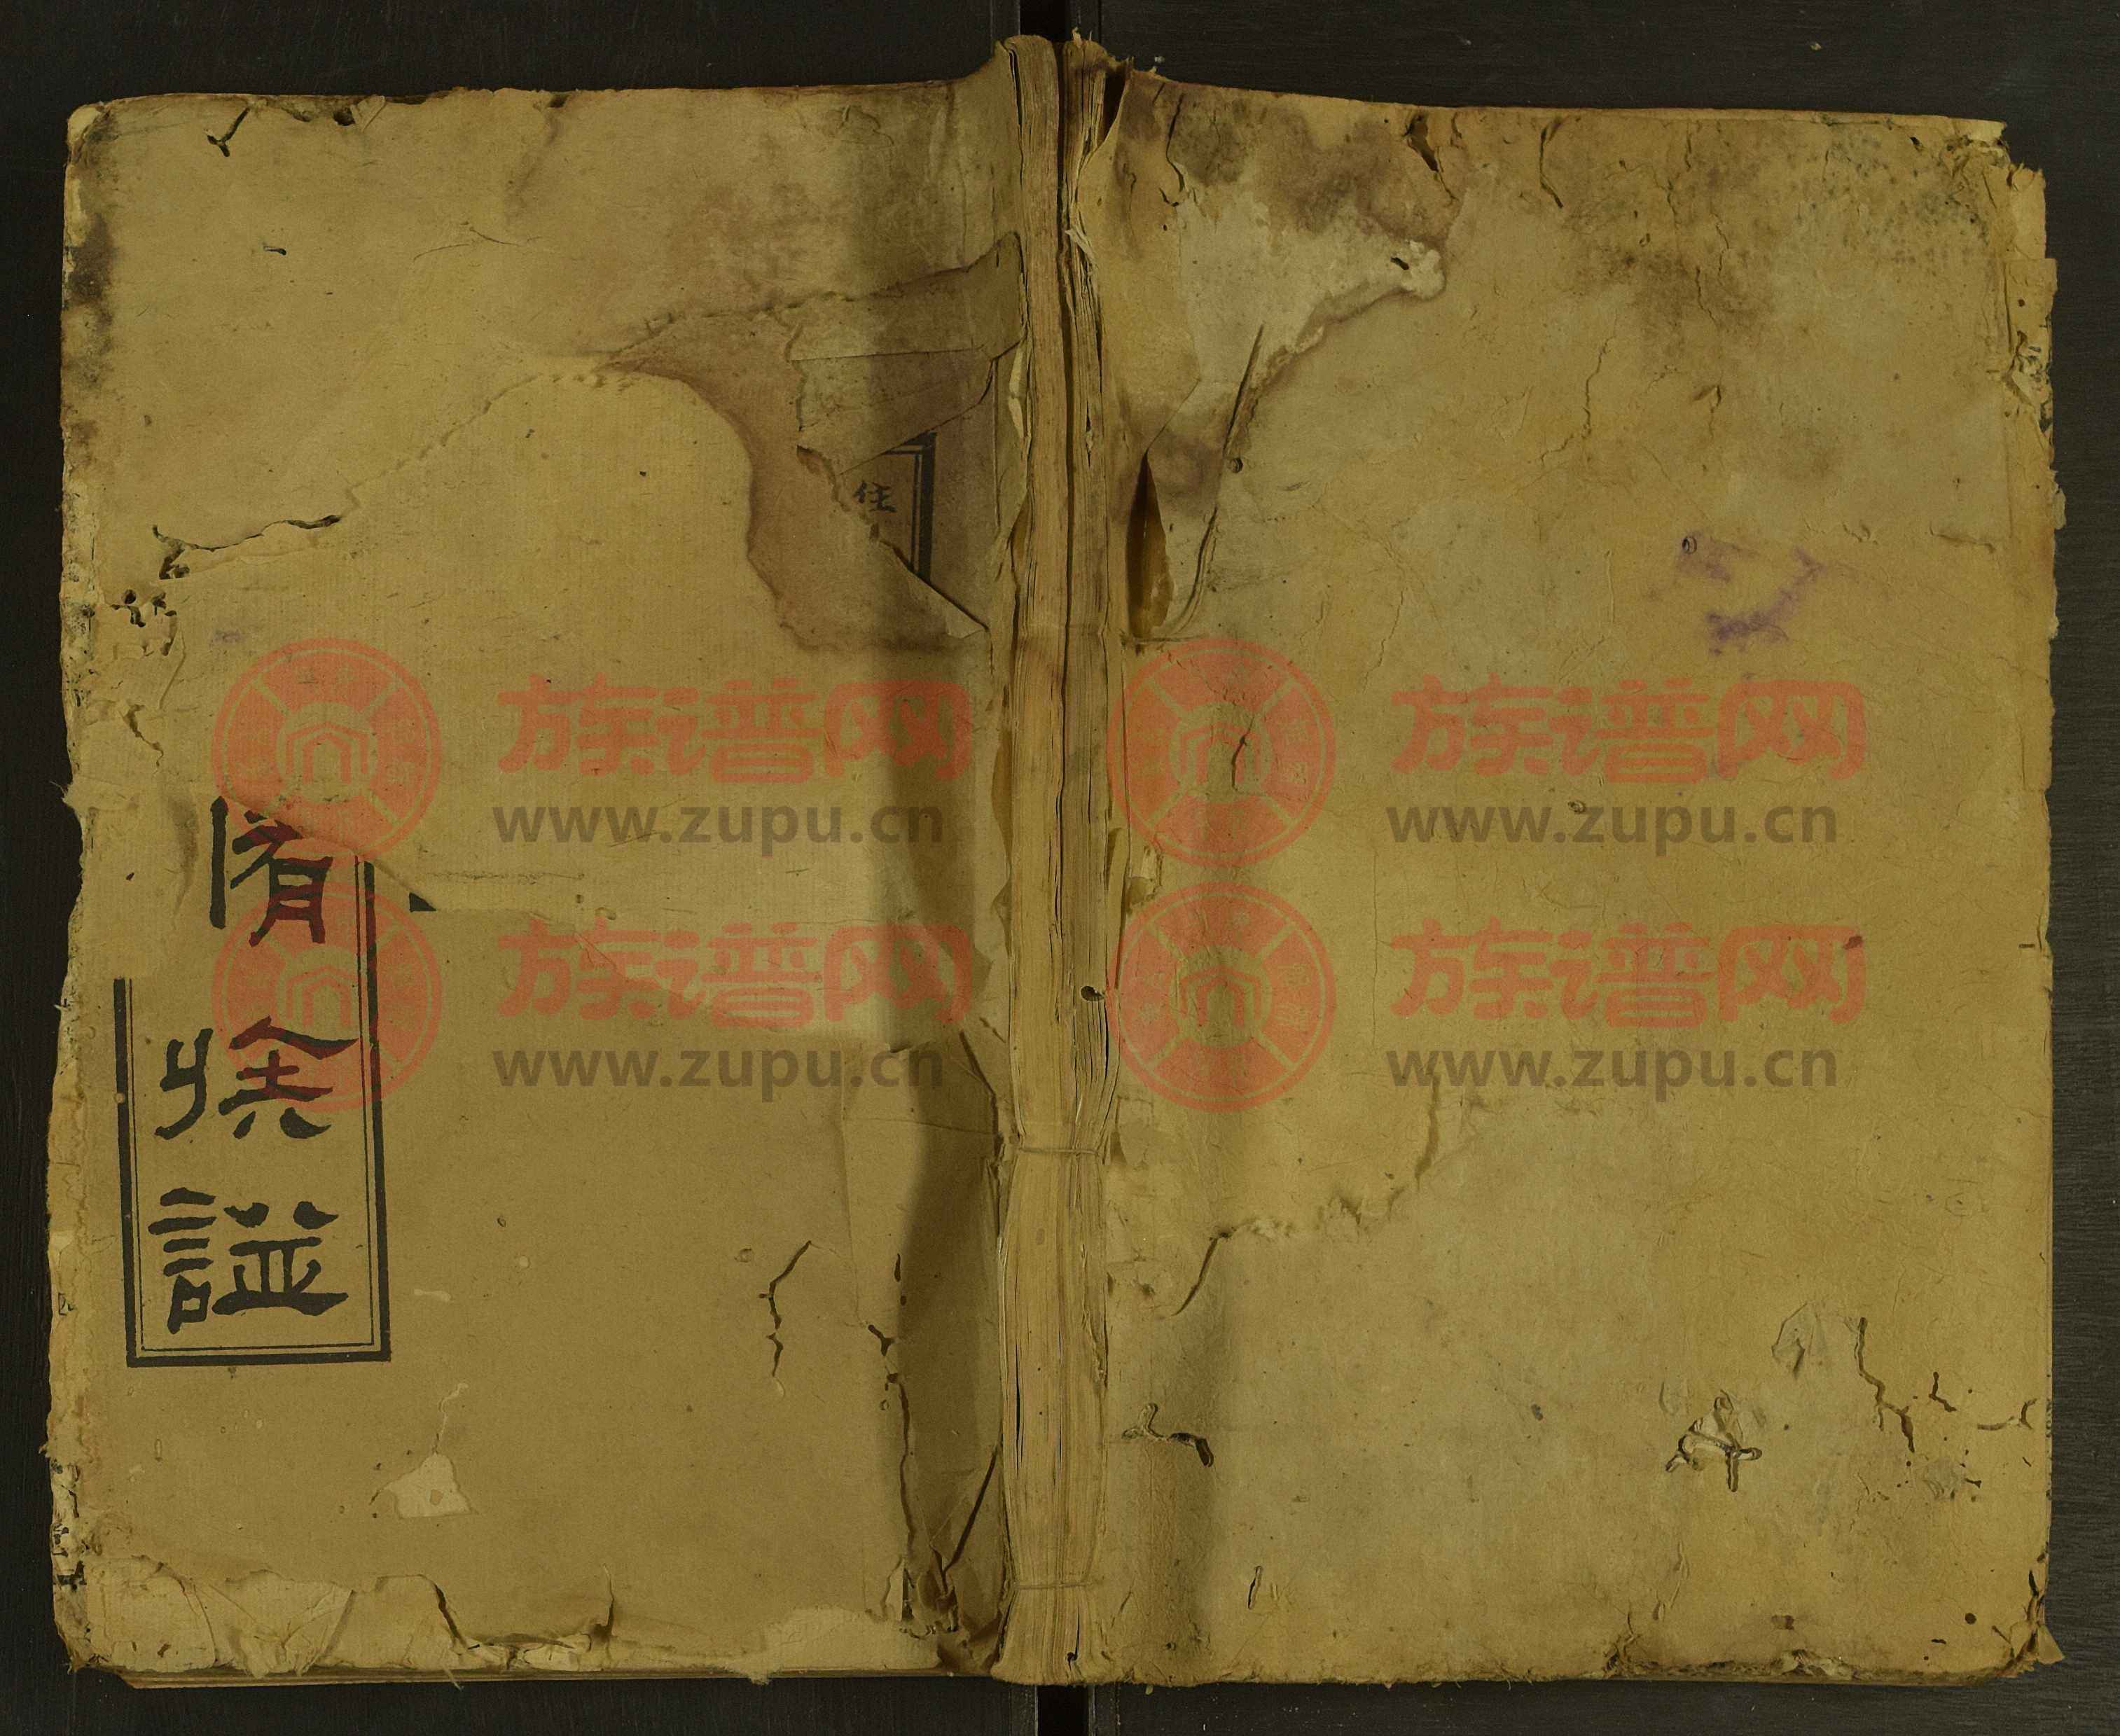 住
脩
族
譜
族谱网
www.zupu.cn
族谱网
www.zupu.cn
族谱网
www.zupu.cn
族谱网
www.zupu.cn